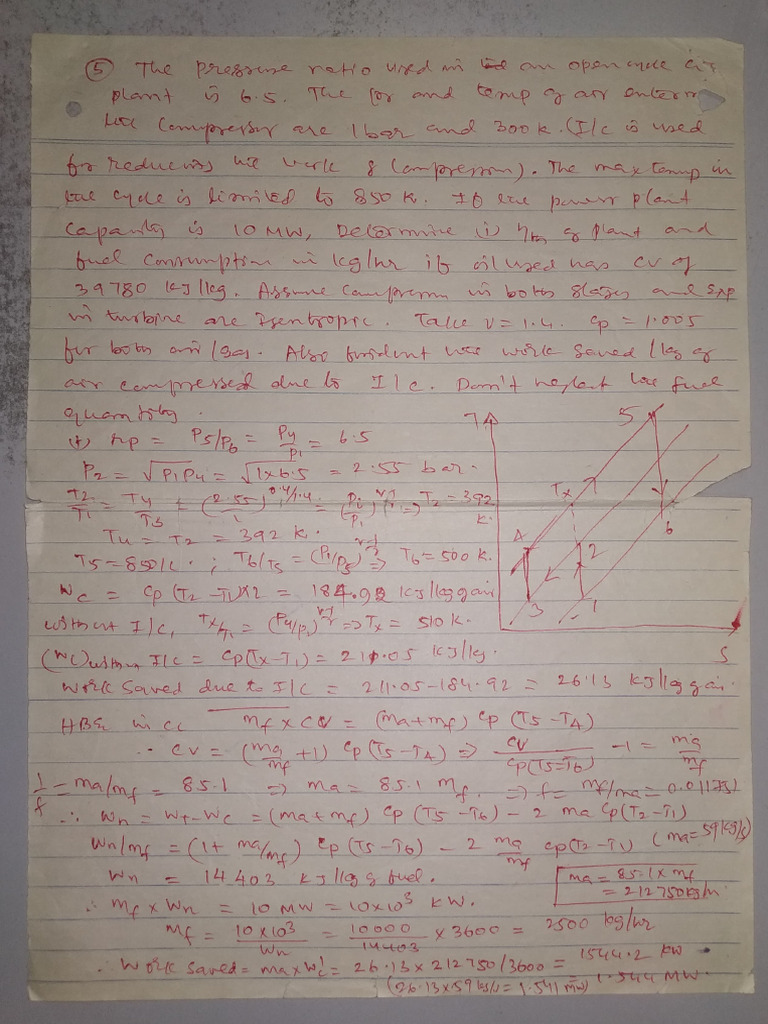 ⑤ The pressure ratio used in an open cycle air
plant is 6.5. The pr and temp of air entering
the compressor are 1 bar and 300 K. (I/c is used
for reducing the work of compression). The max temp in
the cycle is limited to 850 K. If the power plant
capacity is 10 MW, Determine (i) ηth of plant and
fuel consumption in kg/hr if oil used has CV of
39780 KJ/kg. Assume compression in both stages and exp
in turbine are Isentropic. Take γ = 1.4. cp = 1.005
for both air/gas. Also find out the work saved /kg of
air compressed due to I/c. Don't neglect the fuel
quantity.
rp = P5/P6 = P4/P1 = 6.5
P2 = √P1P4 = √1×6.5 = 2.55 bar.
T2/T1 = T4/T3 = (2.55/1)^0.4/1.4 = (Pi/P1)^γ-1/γ ⇒ T2 = 392 K.
T4 = T2 = 392 K.
T5 = 850 K. ; T6/T5 = (P1/P5)^γ-1/γ ⇒ T6 = 500 K.
Wc = Cp (T2 - T1)×2 = 184.92 KJ/kg air
without I/c, Tx/T1 = (P4/P1)^γ-1/γ ⇒ Tx = 510 K.
(Wc) without I/c = Cp(Tx - T1) = 211.05 KJ/kg.
Work saved due to I/c = 211.05 - 184.92 = 26.13 KJ/kg air.
HBE in cc mf × CV = (ma + mf) Cp (T5 - T4)
∴ CV = (ma/mf + 1) Cp (T5 - T4) ⇒ CV/Cp(T5 - T6) - 1 = ma/mf
1/f = ma/mf = 85.1 ⇒ ma = 85.1 mf. ⇒ f = mf/ma = 0.011751
∴ Wn = Wt - Wc = (ma + mf) Cp (T5 - T6) - 2 ma Cp(T2 - T1)
Wn/mf = (1 + ma/mf) Cp (T5 - T6) - 2 ma/mf Cp(T2 - T1) (ma = 59 kg/s)
Wn = 14403 KJ/kg of fuel.
ma = 85.1 × mf
= 212750 kg/hr
∴ mf × Wn = 10 MW = 10×10³ KW.
mf = 10×10³/Wn = 10000/14403 × 3600 = 2500 kg/hr
∴ Work saved = ma × Wc' = 26.13 × 212750/3600 = 1544.2 KW
= 1.544 MW.
(26.13 × 59 kg/s = 1.541 MW)
T
5
Tx
4
2
6
3
1
S